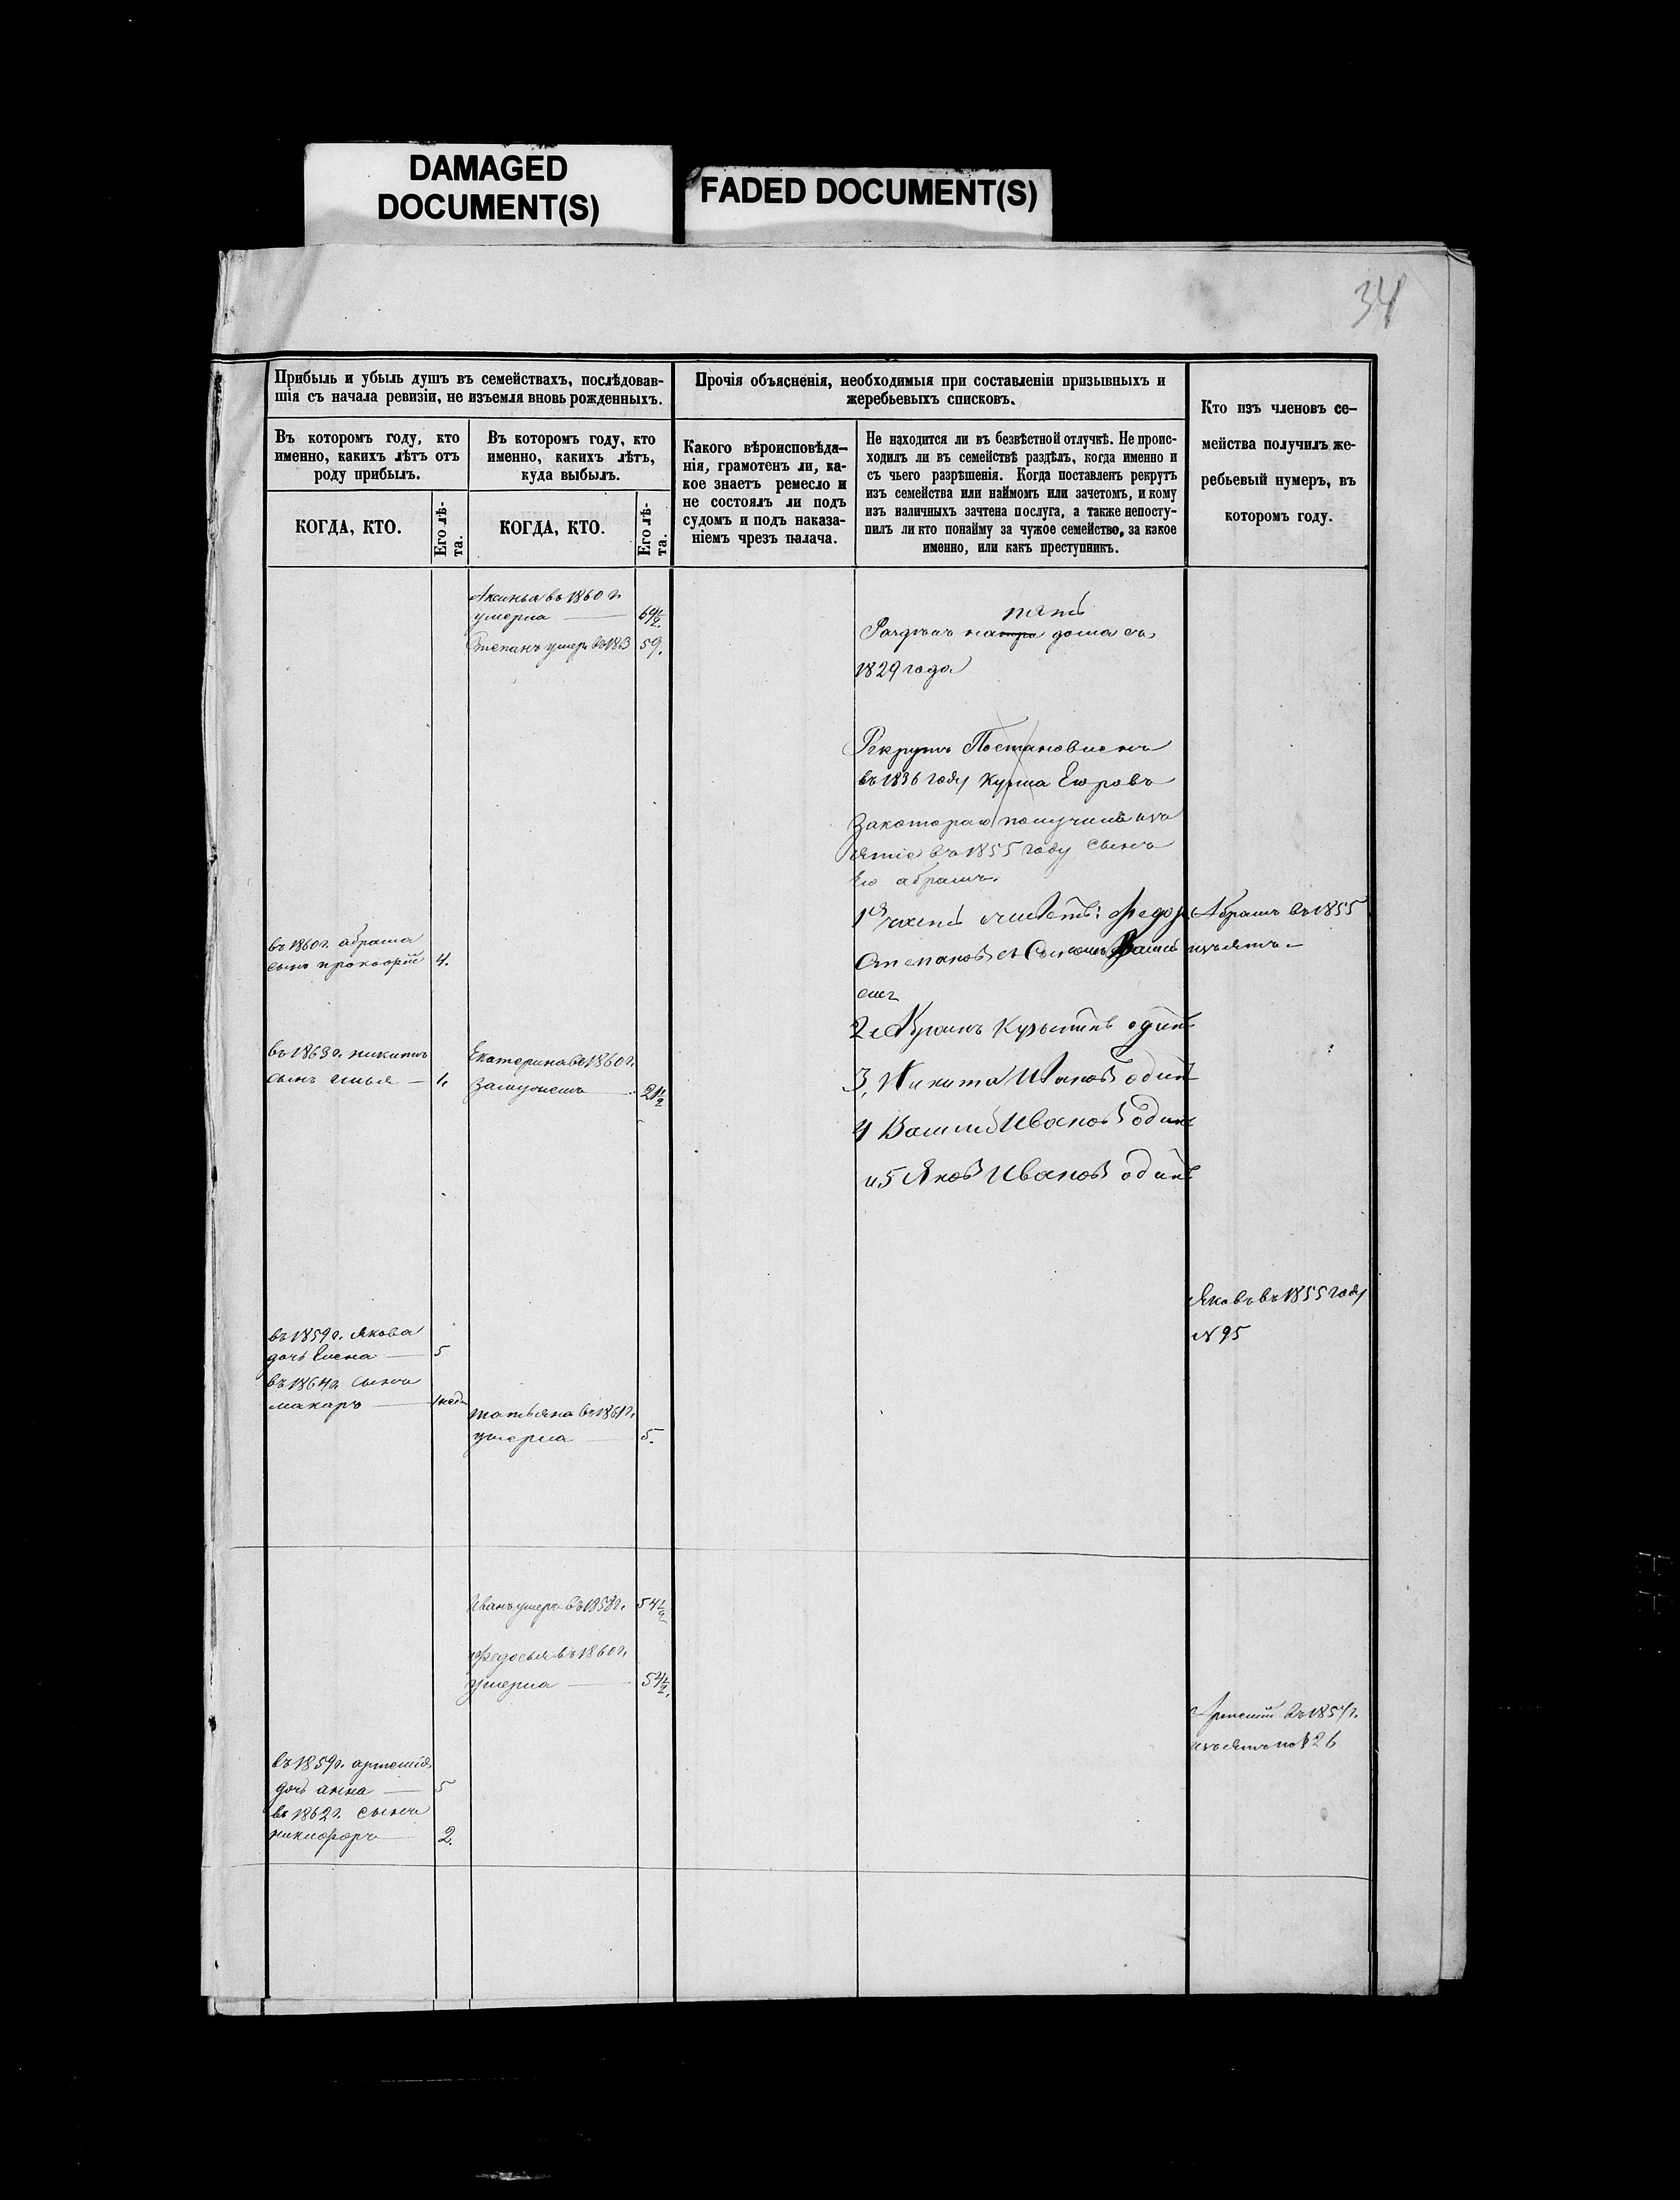 DAMAGED
DOCUMENT(S)
FADED DOCUMENT(S)
34
Прибыль и убыль душъ въ семействахъ, послѣдовав-
шія съ начала ревизіи, не изъемля вновь рожденныхъ.
Въ которомъ году, кто
именно, какихъ лѣтъ отъ
роду прибылъ.
КОГДА, КТО.
Его лѣ-
та.
Въ которомъ году, кто
именно, какихъ лѣтъ,
куда выбылъ.
КОГДА, КТО.
Его лѣ-
та.
Прочія объясненія, необходимыя при составленіи призывныхъ и
жеребьевыхъ списковъ.
Какого вѣроисповѣда-
нія, грамотенъ ли, ка-
кое знаетъ ремесло и
не состоялъ ли подъ
судомъ и подъ наказа-
ніемъ чрезъ палача.
Не находится ли въ безвѣстной отлучкѣ. Не проис-
ходилъ ли въ семействѣ раздѣлъ, когда именно и
съ чьего разрѣшенія. Когда поставленъ рекрутъ
изъ семейства или наймомъ или зачетомъ, и кому
изъ наличныхъ зачтена послуга, а также непосту-
пилъ ли кто понайму за чужое семейство, за какое
именно, или какъ преступникъ.
Кто изъ членовъ се-
мейства получилъ же-
ребьевый нумеръ, въ
которомъ году.
Аксинья въ 1860 г.
умерла — 64½.
Степанъ умеръ въ 1863 59.
пять
Раздѣлъ на три дома съ
1829 года
Рекрутъ Постановленъ
въ 1836 году Кузма Егоровъ
За котораго получилъ изъ
ятіе въ 1855 году Сынъ
Его абрамъ.
1я часть Федоръ
Степановъ съ Сыномъ
2й Абрамъ Кузьминъ одинъ
3, Никита Иванов один
4 Василій Ивановъ одинъ
и 5 Яков Иванов одинъ
Абрамъ въ 1855
изъятъ.—
въ 1860 г. абрама
сынъ прокофій 4.
въ 1863 г. никиты
сынъ илья — 1.
Екатерина въ 1860 г.
Замужемъ 21½
Яковъ въ 1855 году
№ 95
въ 1859 г. Якова
дочь Елена — 5
въ 1864 г. Сынъ
макаръ — 1 нед
татьяна въ 1861 г.
умерла — 5.
Иванъ умеръ въ 1858 г. 54½
Федосья въ 1860 г.
умерла — 54½.
Артемій въ 1854 г.
изъятъ по § 26
въ 1859 г. артемія
дочь анна — 5
въ 1862 г. сынъ
никифоръ — 2.